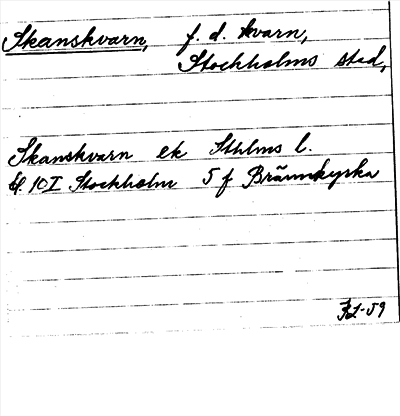 Skanskvarn, f. d. kvarn,
Stockholms stad,
Skanskvarn ek Sthlms l.
bl. 10I Stockholm 5 f Brännkyrka